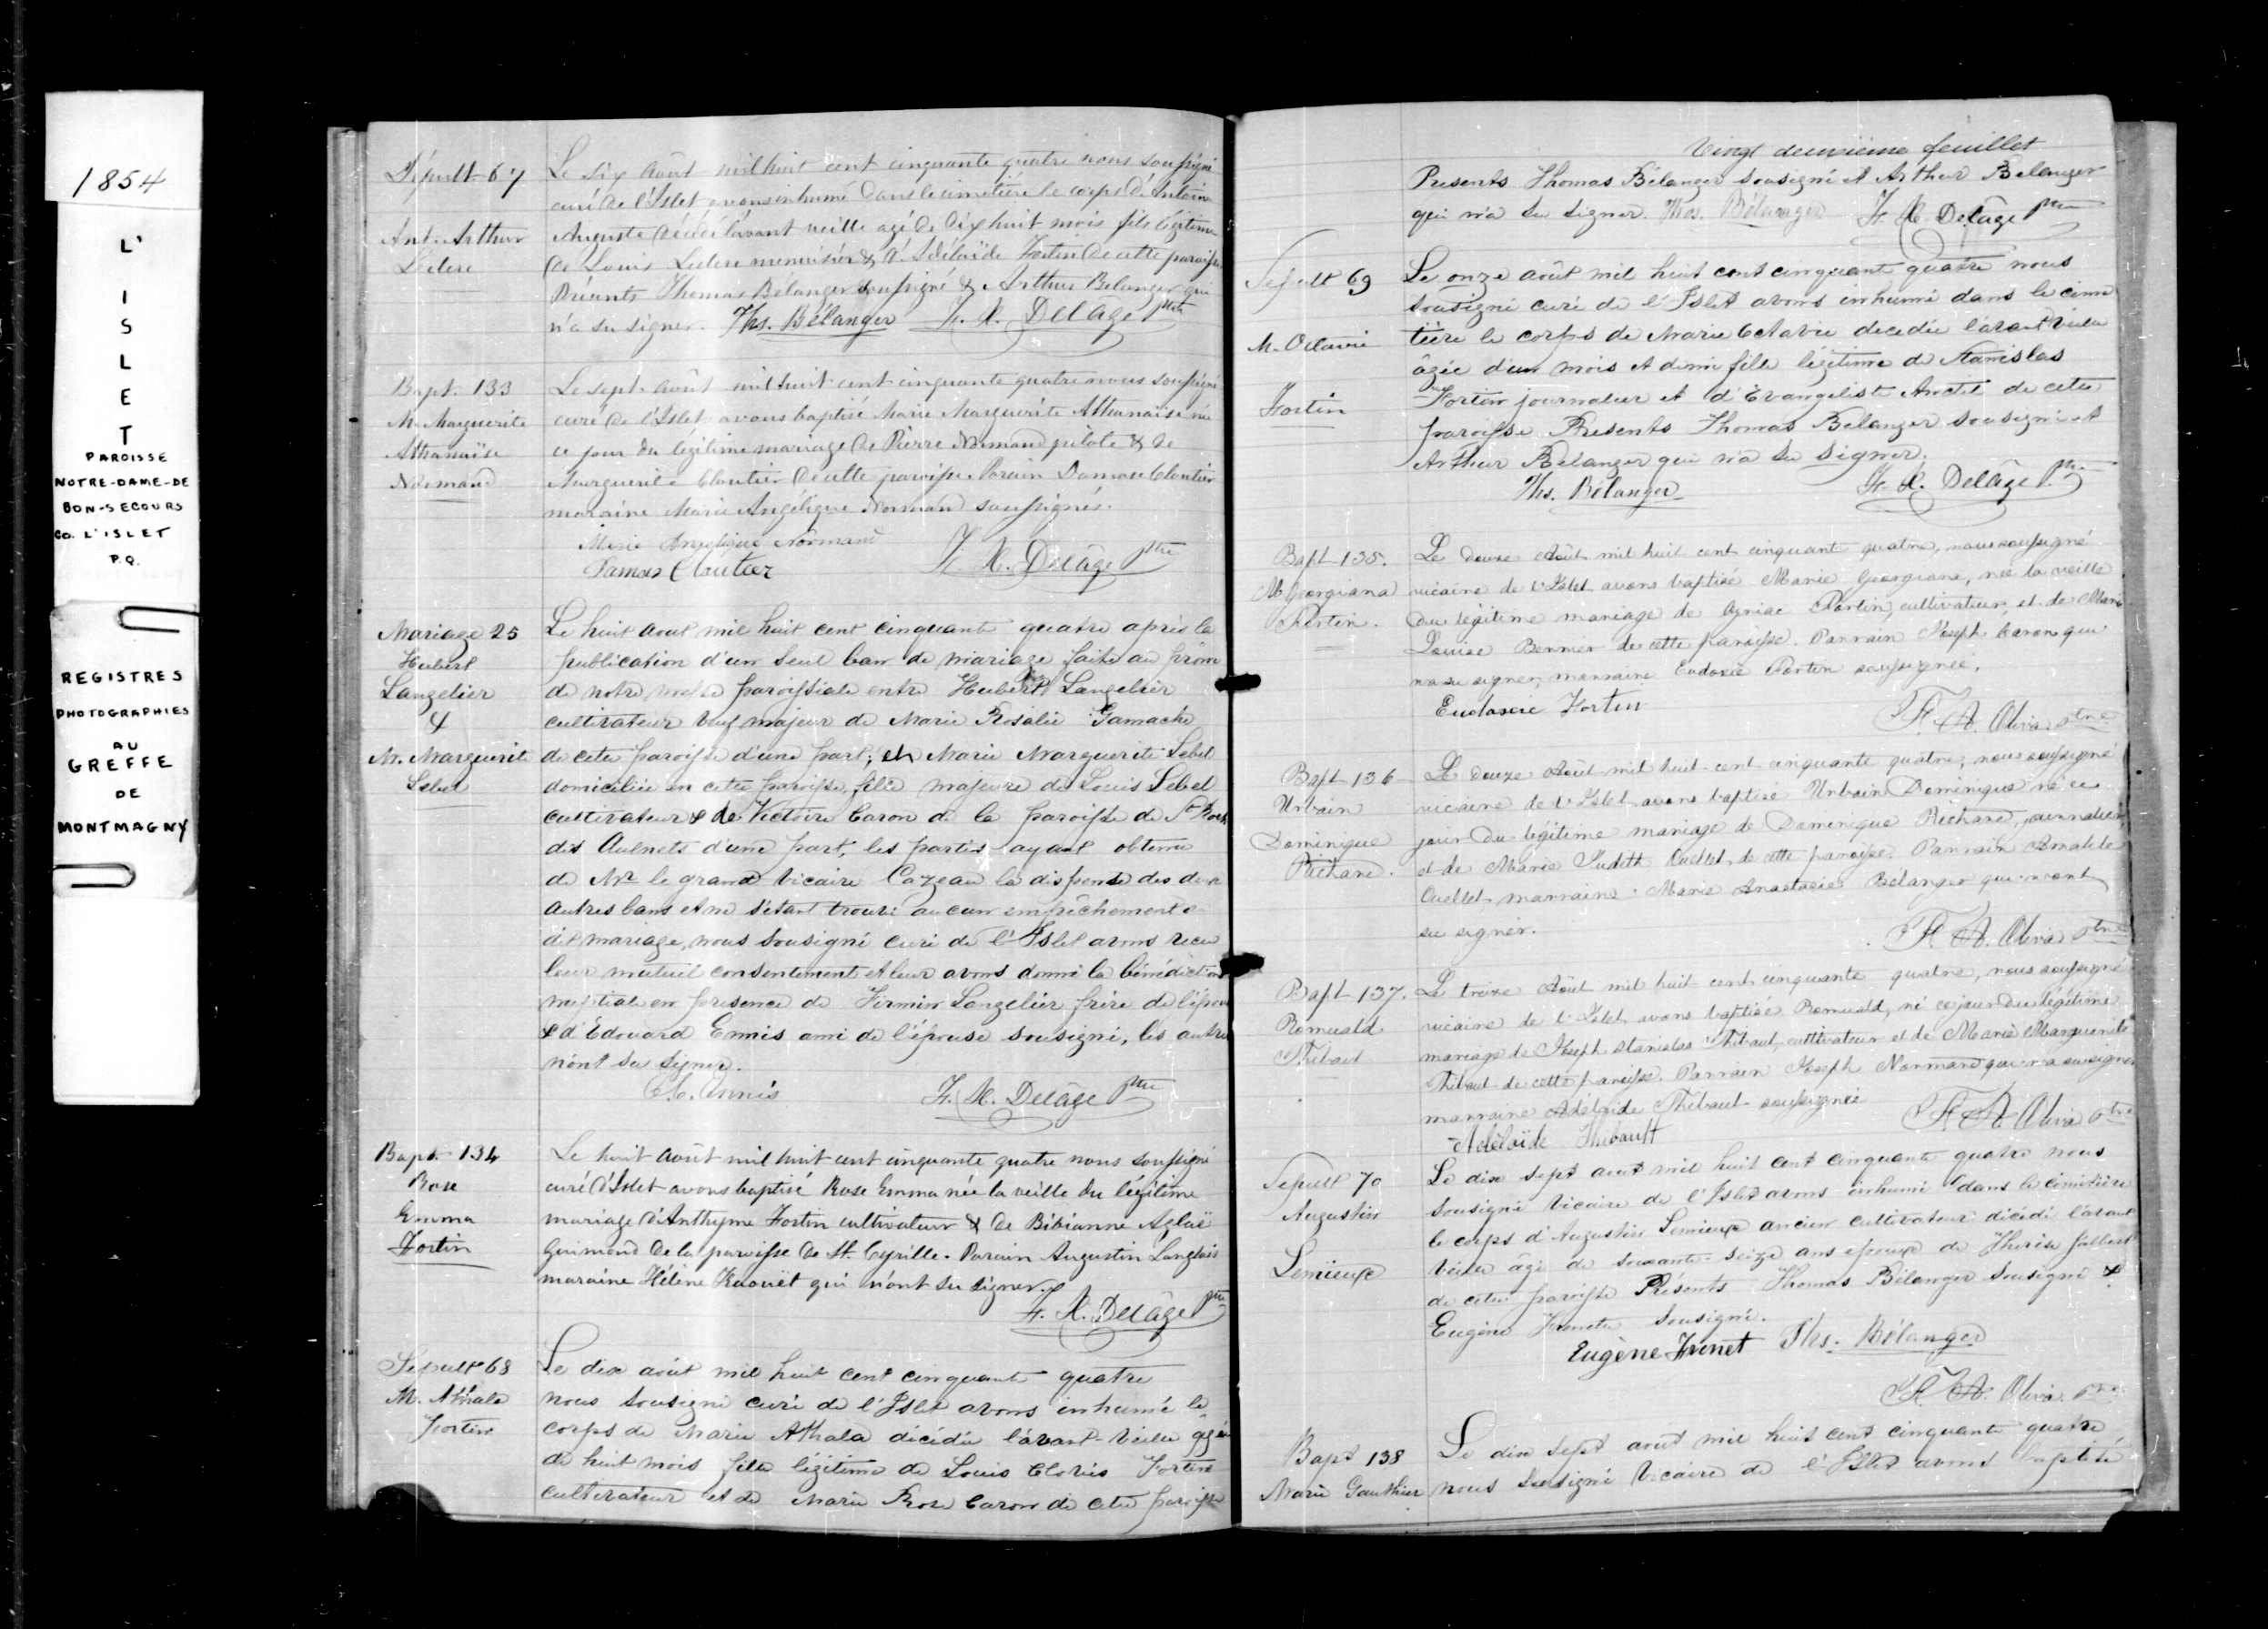 1854
L'
I
S
L
E
T
PAROISSE
NOTRE-DAME-DE
BON-SECOURS
Co. L'ISLET
P.Q.
REGISTRES
PHOTOGRAPHIES
AU
GREFFE
DE
MONTMAGNY
Sépult. 67
Ant. Arthur
Leclerc
Le six août mil huit cent cinquante quatre nous soussigné
curé de l'Islet avons inhumé dans le cimetière le corps d'Antoine
Auguste décédé l'avant veille agé de dix huit mois fils légitime
de Louis Leclerc menuisier & d'Adélaïde Fortin de cette paroisse
Présents Thomas Bélanger soussigné & Arthur Belanger qui
n'a su signer. Ths. Bélanger F. X. Delâge Ptre
Bapt. 133
M. Marguerite
Athanaïse
Normand
Le sept août mil huit cent cinquante quatre nous soussigné
curé de l'Islet avons baptisé Marie Marguerite Athanaïse née
ce jour du légitime mariage de Pierre Normand pilote & de
Marguerite Cloutier de cette paroisse. Parain Damase Cloutier
maraine Marie Angélique Normand soussignés.
Marie Angelique Normand
Damas Cloutier F. X. Delâge Ptre
Mariage 25
Hubert
Langelier
&
M. Marguerite
Lebel
Le huit aout mil huit cent cinquante quatre après la
publication d'un seul ban de mariage faite au prône
de notre messe paroissiale entre Hubert Langelier
cultivateur veuf majeur de Marie Rosalie Gamache
de cette paroisse d'une part; et Marie Marguerite Lebel
domiciliée en cette paroisse, fille majeure de Louis Lebel
cultivateur & de Victoire Caron de la paroisse de St Roch
des Aulnets d'une part, les parties ayant obtenu
de Mr le grand Vicaire Cazeau la dispense des deux
autres bans et ne s'étant trouvé aucun empêchement
dit mariage, nous sousigné curé de l'Islet avons reçu
leur mutuel consentement et leur avons donné la bénédiction
nuptiale en présence de Firmin Langelier frère de l'époux
& d'Edouard Ennis ami de l'épouse sousigné, les autres
n'ont su signer.
E. Ennis F. X. Delâge Ptre
Bapt. 134
Rose
Emma
Fortin
Le huit août mil huit cent cinquante quatre nous soussigné
curé d'Islet avons baptisé Rose Emma née la veille du légitime
mariage d'Anthyme Fortin cultivateur & de Bibianne Aglaé
Guimond de la paroisse de St. Cyrille. Parain Augustin Langlois
maraine Hélène Kuouët qui n'ont su signer.
F. X. Delâge Ptre
Sepult 68
M. Athala
Fortin
Le dix août mil huit cent cinquante quatre
nous sousigné curé de l'Islet avons inhumé le
corps de Marie Athala décédée l'avant-veille agée
de huit mois fille légitime de Louis Clovis Fortin
cultivateur et de Marie Rose Caron de cette paroisse
Vingt deuxième feuillet
Presents Thomas Bélanger sousigné et Arthur Belanger
qui n'a su signer. Ths. Bélanger F. X. Delâge Ptre
Sepult 69
M. Octavie
Fortin
Le onze août mil huit cent cinquante quatre nous
sousigné curé de l'Islet avons inhumé dans le cime
tière le corps de Marie Octavie decedée l'avant veille
âgée d'un mois et demi fille légitime de Stanislas
Fortin journalier et d'Evangeliste Anctil de cette
paroisse Presents Thomas Belanger sousigné et
Arthur Belanger qui n'a su signer.
Ths. Bélanger F. X. Delâge Ptre
Bapt 135.
M. Georgiana
Fortin.
Le douze Août mil huit cent cinquante quatre, nous soussigné
vicaire de l'Islet avons baptisé Marie Georgiana, née la veille
du légitime mariage de Fortin, cultivateur, et de Marie
Louise Bernier de cette paroisse. Parrain Joseph Caron qui
n'a su signer, marraine Eudoxie Fortin soussignée.
Eudoxie Fortin F. A. Oliva Ptre
Bapt 136
Urbain
Dominique
Richard.
Le douze Août mil huit cent cinquante quatre, nous soussigné
vicaire de l'Islet avons baptisé Urbain Dominique né ce
jour du légitime mariage de Dominique Richard, journalier,
et de Marie Judith Ouellet de cette paroisse. Parrain Amable
Ouellet marraine Marie Anastasie Bélanger qui n'ont
su signer.
F. A. Oliva Ptre
Bapt 137.
Romuald
Thibaut
Le treize Août mil huit cent cinquante quatre, nous soussigné
vicaire de l'Islet avons baptisé Romuald, né ce jour du légitime
mariage de Joseph Stanislas Thibaut, cultivateur et de Marie Marguerite
Thibaut de cette paroisse. Parrain Joseph Normand qui n'a su signer
marraine Adélaide Thibaut soussignée
Adélaïde Thibault F. A. Oliva Ptre
Sepult 70
Augustin
Lemieux
Le dix sept aout mil huit cent cinquante quatre nous
sousigné Vicaire de l'Islet avons inhumé dans le cimetière
le corps d'Augustin Lemieux ancien cultivateur décédé l'avant
veille âgé de soixante-seize ans époux de Thérèse
de cette paroisse Présents Thomas Bélanger sousigné &
Eugène sousigné.
Eugène Ths. Bélanger
F. A. Oliva Ptre
Bapt 138
Marie Gauthier
Le dix sept aout mil huit cent cinquante quatre
nous sousigné Vicaire de l'Islet avons baptisé